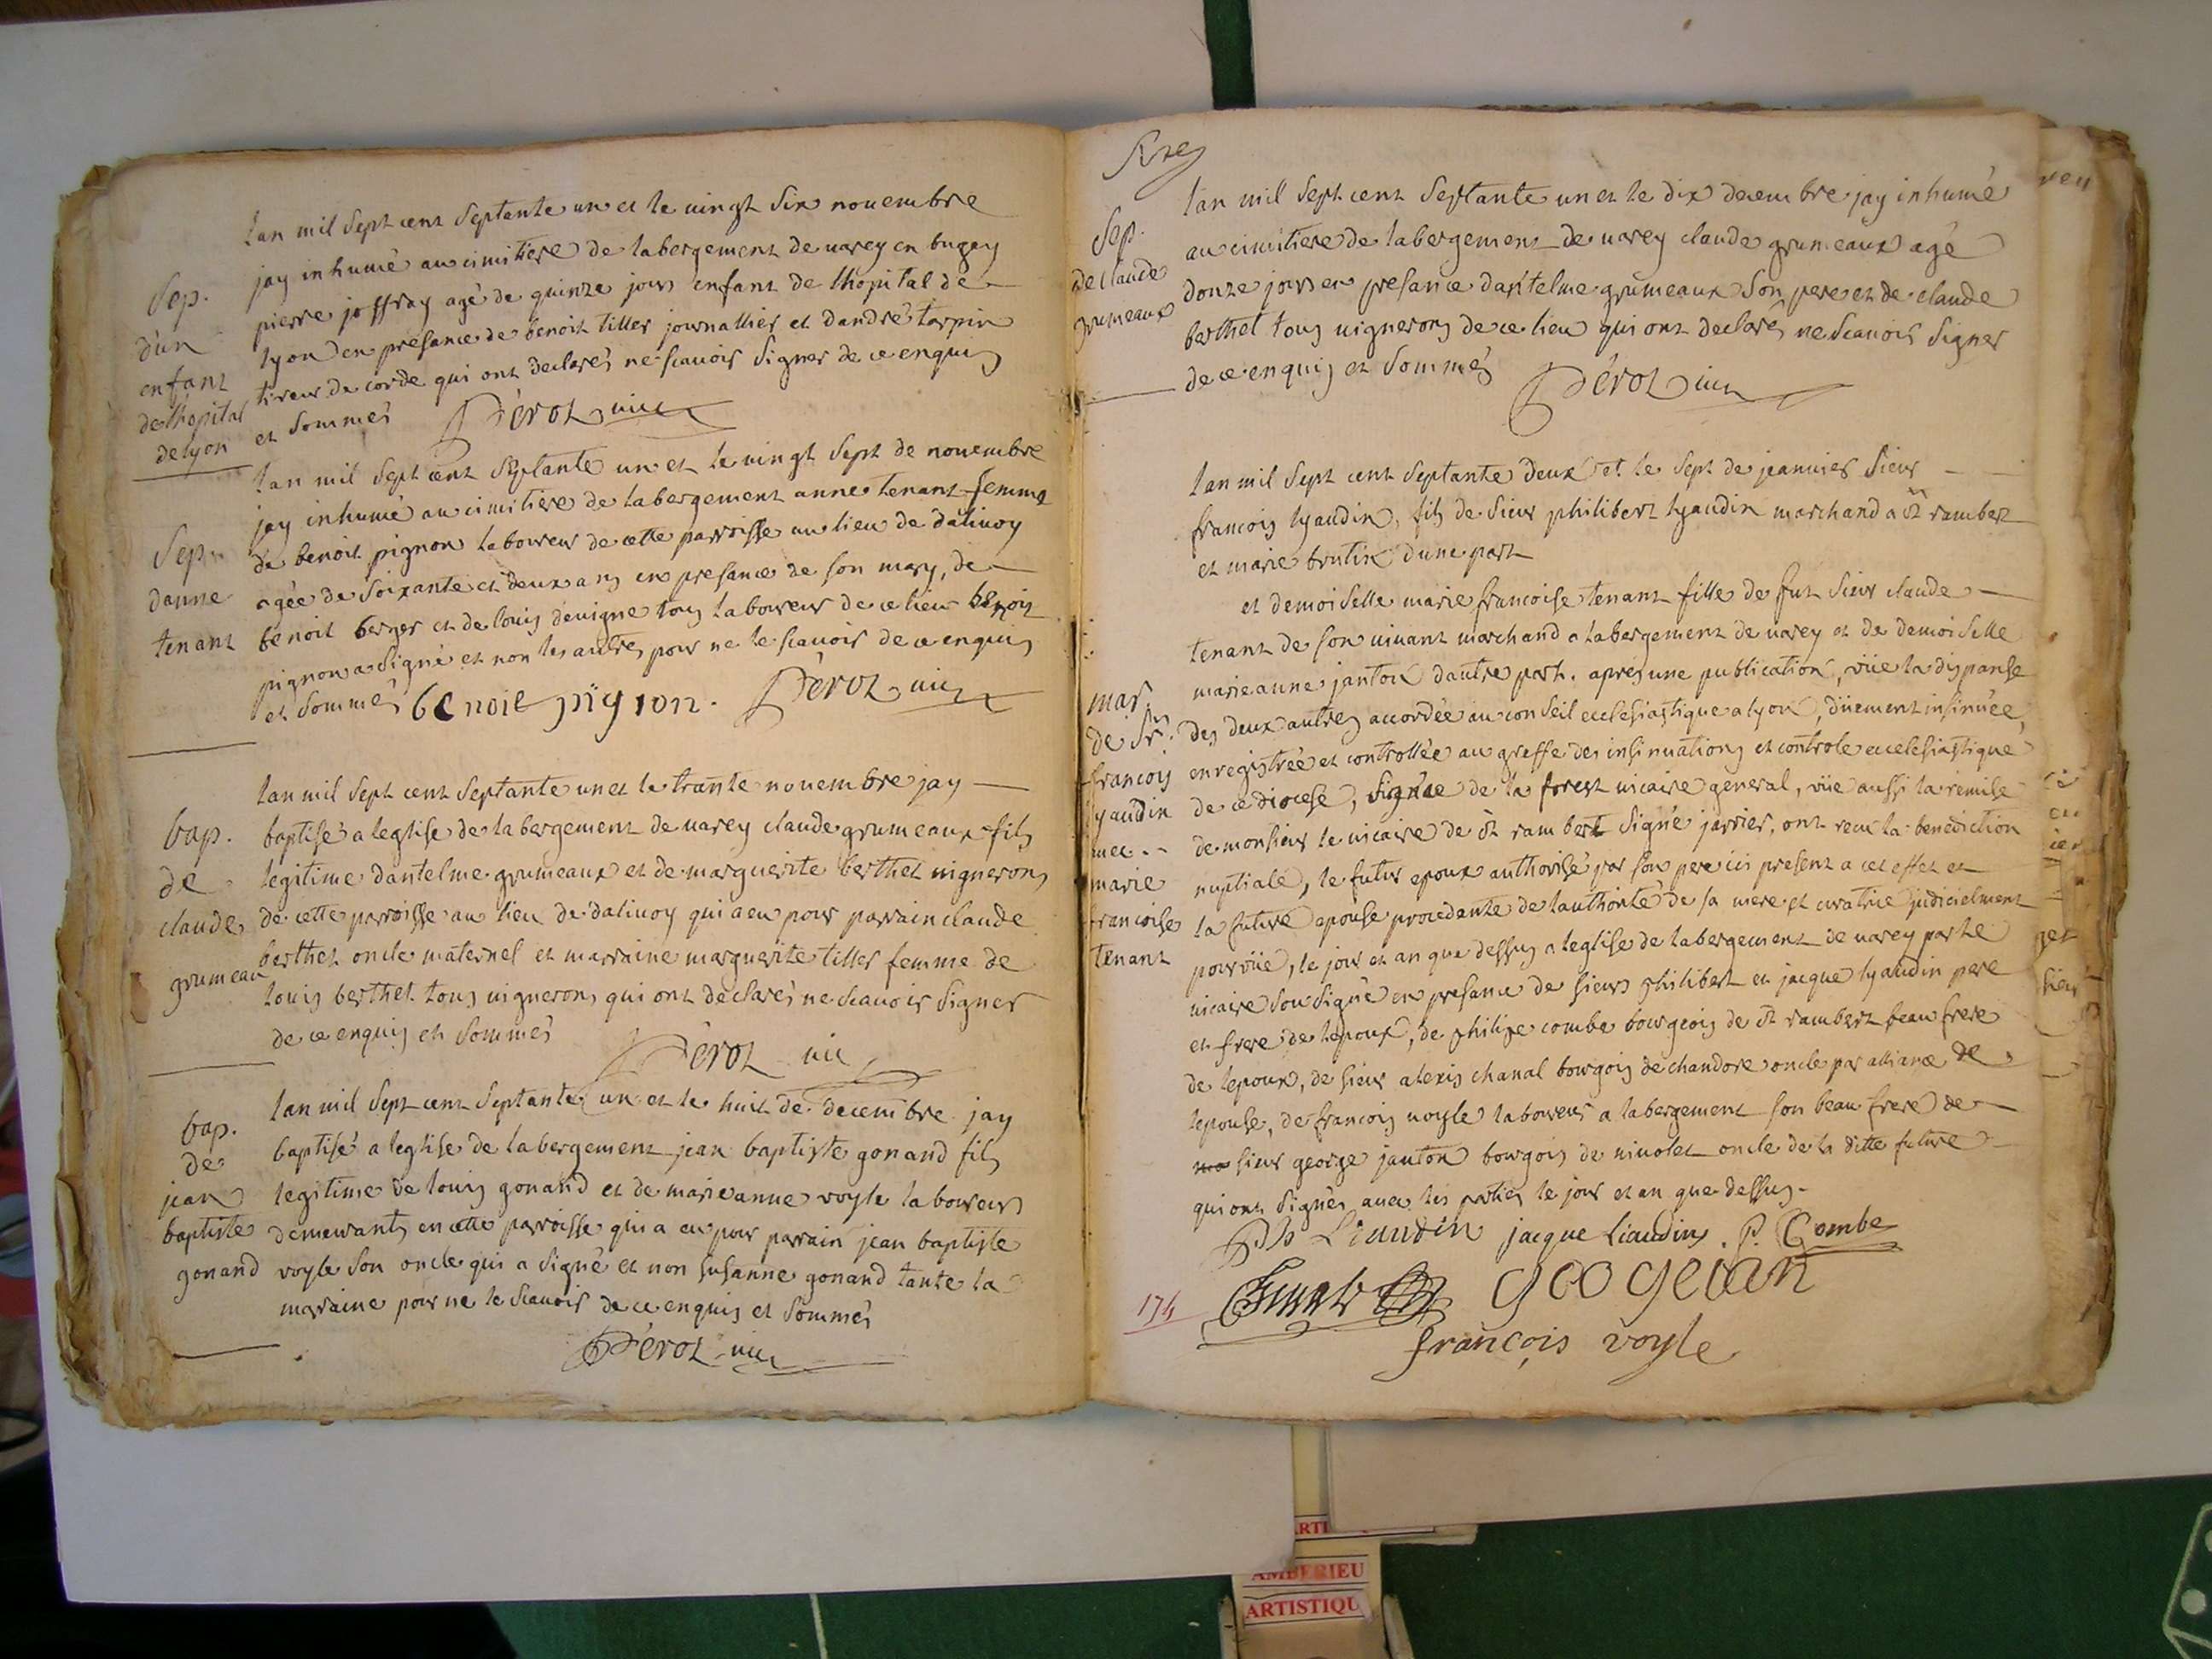 Sep.
d'un
enfant
de lhopital
de lyon
lan mil sept cent septante un et le vingt six novembre
jay inhumé au cimitiere de labergement de varey en bugey
pierre joffray agé de quinze jours enfant de lhopital de
lyon en presance de benoit tiller journallier et dandré tarpin
tireur de corde qui ont declarés ne scavoir signer de ce enquis
et sommés Pérot vic
Sep.
danne
tenant
lan mil sept cent septante un et le vingt sept de novembre
jay inhumé au cimitiere de labergement anne tenant femme
de benoit pignon laboureur de cette parroisse au lieu de dalivoy
agée de soixante et deux ans en presance de son mary, de
benoit berger et de louis devigne tous laboureur de ce lieu benoit
pignon a signé et non les autres pour ne le scavoir de ce enquis
et sommés benoit pignon. Pérot vic
bap.
de
claude
grumeau
lan mil sept cent septante un et le trante novembre jay
baptisé a leglise de labergement de varey claude grumeaux fils
legitime dantelme grumeaux et de marguerite berthet vignerons
de cette parroisse au lieu de dalivoy qui a eu pour parrain claude
berthet oncle maternel et marraine marguerite tiller femme de
louis berthet tous vignerons qui ont declarés ne scavoir signer
de ce enquis et sommés
Pérot vic
bap.
de
jean
baptiste
gonand
lan mil sept cent septante un et le huit de decembre jay
baptisé a leglise de labergement jean baptiste gonand fils
legitime de louis gonand et de marie anne voyle laboureurs
demeurants en cette parroisse qui a eu pour parrain jean baptiste
voyle son oncle qui a signé et non susanne gonand tante la
marraine pour ne le scavoir de ce enquis et sommés
Pérot vic
Sep.
de claude
grumeaux
lan mil sept cent septante un et le dix decembre jay inhumé
au cimitiere de labergement de varey claude grumeaux agé
donze jours en presance dantelme grumeaux son pere et de claude
berthet tous vignerons de ce lieu qui ont declarés ne scavoir signer
de ce enquis et sommés Pérot vic
mar.
de Sr.
francois
lyaudin
avec
marie
francoise
tenant
lan mil sept cent septante deux et le sept de jeanvier sieur
francois lyaudin, fils de sieur philibert lyaudin marchand a st rambert
et marie brutin dune part
et demoiselle marie francoise tenant fille de fut sieur claude
tenant de son vivant marchand a labergement de varey et de demoiselle
marie anne janton dautre part. apres une publication, vüe la dispanse
des deux autres accordée au conseil ecclesiastique a lyon, düement insinuée,
enregistrée et controllée au greffe des insinuations et controle eccelesiastique
de ce diocese, signée de la forest vicaire general, vüe aussi la remise
de monsieur le vicaire de st rambert signé jarrier, ont recu la benediction
nuptiale, le futur epoux authorisé par son pere icis present a cet effet et
la future epouse procedante de lauthorité de sa mere et curatrice judicielment
pourvüe, le jour et an que dessus a leglise de labergement de varey par le
vicaire sousigné en presance de sieurs philibert et jacque lyaudin pere
et frere de lepoux, de philipe combe bourgeois de st rambert beau frere
de lepoux, de sieur alexis chanal bourgois de chandore oncle par alliance de
lepouse, de francois voyle laboureur a labergement son beau frere de
sieur george janton bourgois de nivolet oncle de la ditte future
qui ont signés avec les parties le jour et an que dessus.
Ph Liaudin jacque liaudin. P. Combe
françois voyle
174
AMBERIEU